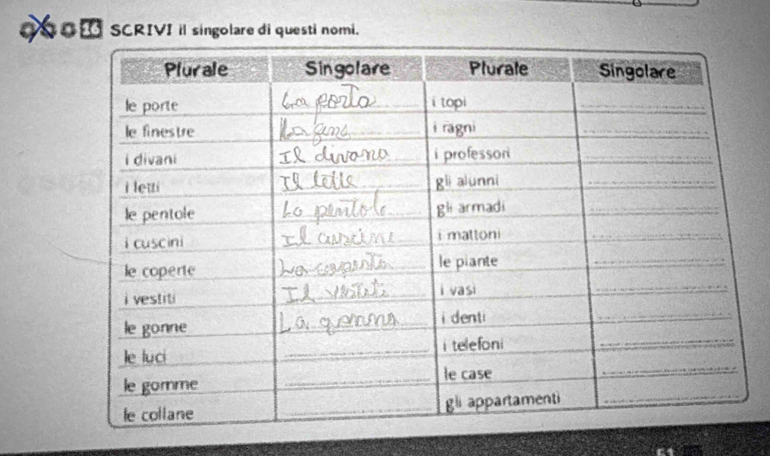 16 SCRIVI il singolare di questi nomi.
Plurale Singolare Plurale Singolare
le porte La porta i topi
le finestre La i ragni
i divani Il divano i professori
i letti Il i gli alunni
le pentole La gli armadi
i cuscini Il i mattoni
le coperte La le piante
i vestiti Il i vasi
le gonne La i denti
le luci i telefoni
le gomme le case
le collane gli appartamenti
51